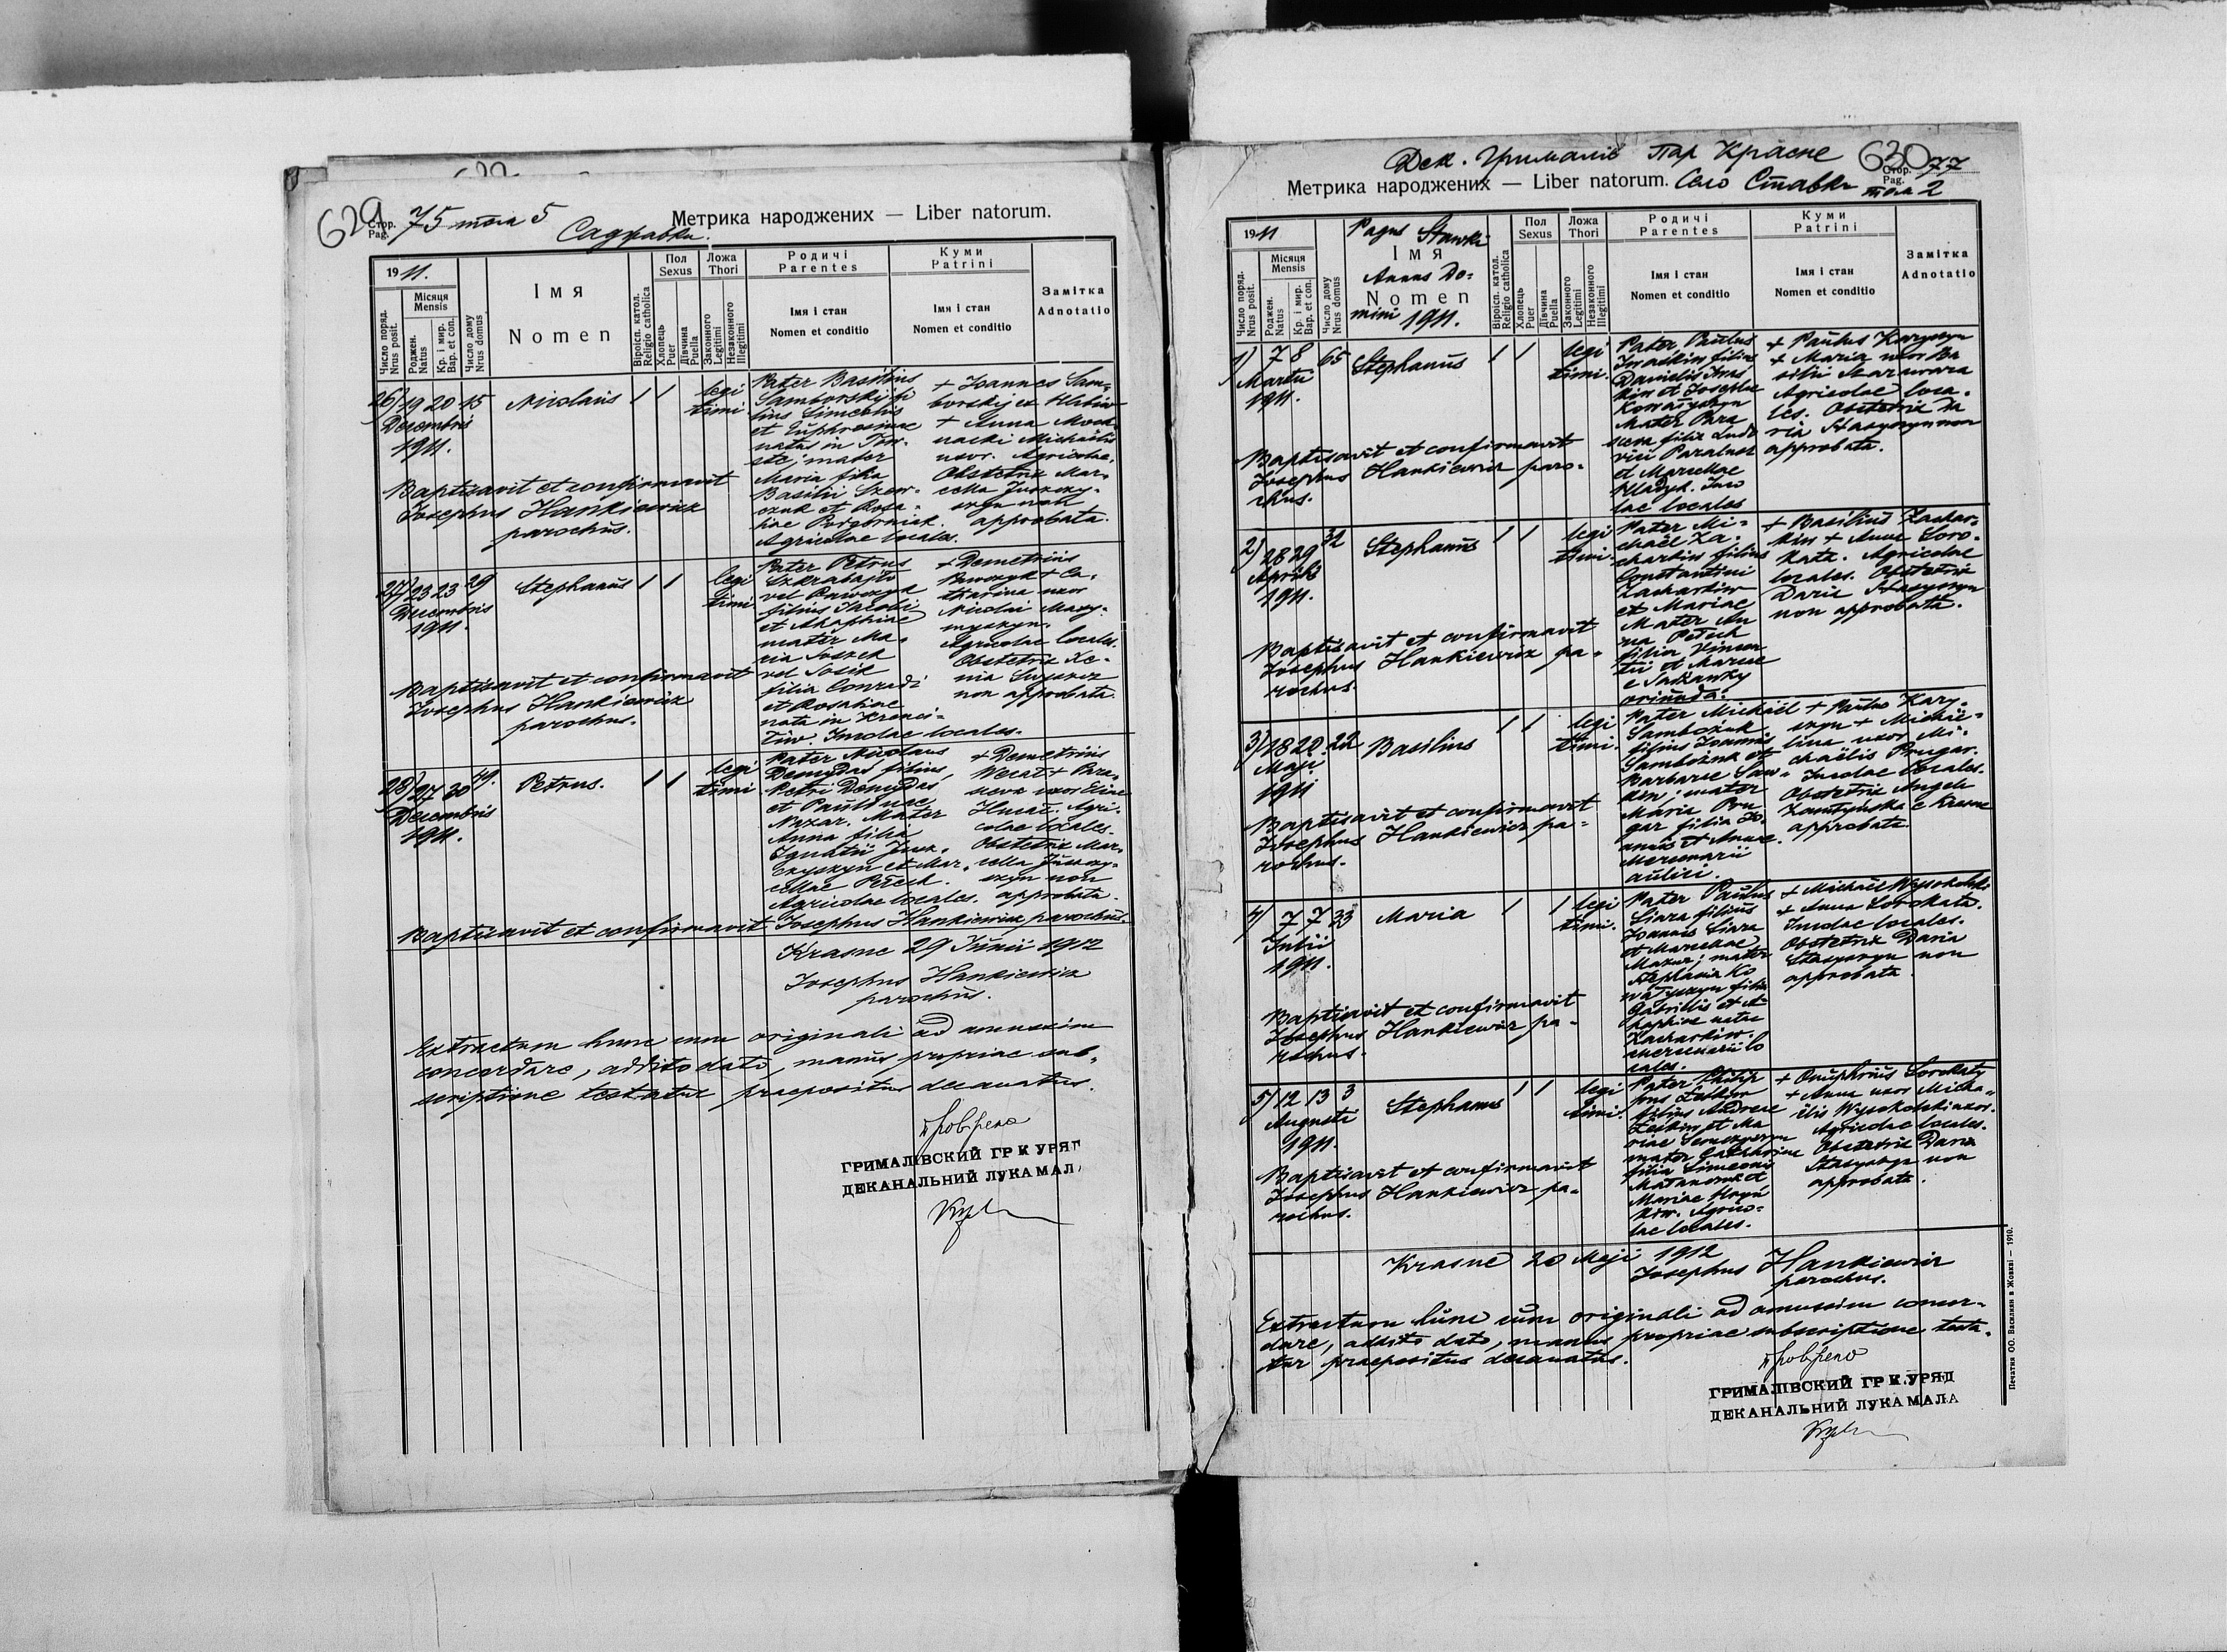 629
Стор. Pag. 75 тога 5
Саджавки.
Метрика народжених — Liber natorum.
1911.
Число поряд. Nrus posit.
Місяця Mensis
Роджен. Natus
Кр. і мир. Bap. et con.
Число дому Nrus domus
Імя
Nomen
Віроісп. катол. Religio catholica
Пол Sexus
Хлопець Puer
Дівчина Puella
Ложа Thori
Законного Legitimi
Незаконного Illegitimi
Родичі Parentes
Імя і стан
Nomen et conditio
Куми Patrini
Імя і стан
Nomen et conditio
Замітка
Adnotatio
26) 19 20 15
Decembris
1911.
Nicolaus
1 1
legi
timi
Pater Basilius
Samborskij fi
lius Simeonis
et Euphrosinae
natus in
mater
Maria filia
Basilii
et Rosa-
liae Podgórniak.
Agricolae locales.
+ Joannes Sam-
borskij ex
+ Anna
Michaelis
uxor. Agricolae.
Obstetrix Mar-
cella Juszczy-
szyn non
approbata.
Baptisavit et confirmavit
Josephus Hankiewicz
parochus.
27) 23 23 29
Decembris
1911.
Stephanus
1 1
legi
timi
Pater Petrus
vel
filius Jacobi
et Ahaphiae
mater Ma-
ria Soszek
vel Sosik
filia Conradi
et Rosaliae
nata in
Incolae locales.
+ Demetrius
+ Ca-
tharina uxor
Nicolai
Agricolae locales.
Obstetrix Xe-
nia
non approbata.
Baptisavit et confirmavit
Josephus Hankiewicz
parochus.
28) 27 30 49.
Decembris
1911.
Petrus.
1 1
legi
timi
Pater Nicolaus
Demydas filius
Petri Demydas
et Paulinae
Nazar. Mater
Anna filia
Ignatii Jusz-
czyszyn et Mar-
cellae Pełech.
Agricolae locales.
+ Demetrius
+ Para-
sceva uxor Eliae
Hnat. Agri-
colae locales.
Obstetrix Mar-
cella Juszczy-
szyn non
approbata.
Baptisavit et confirmavit Josephus Hankiewicz parochus.
Krasne 29 Junii 1912
Josephus Hankiewicz
parochus.
Extractum hunc cum originali ad amussim
concordare, addito dato, manus propriae sub-
scriptione testatur praepositus decanatus.
ГРИМАЛІВСКИЙ ГР К УРЯД
ДЕКАНАЛЬНИЙ ЛУКА МАЛА
Дек. Грималів Пар Красне
630 77
Стор. Pag.
Метрика народжених — Liber natorum. Село Ставки
тога 2
1911
Число поряд. Nrus posit.
Місяця Mensis
Роджен. Natus
Кр. і мир. Bap. et con.
Число дому Nrus domus
Pagus Stawki
Імя
Annus Do-
Nomen
mini 1911.
Віроісп. катол. Religio catholica
Пол Sexus
Хлопець Puer
Дівчина Puella
Ложа Thori
Законного Legitimi
Незаконного Illegitimi
Родичі Parentes
Імя і стан
Nomen et conditio
Куми Patrini
Імя і стан
Nomen et conditio
Замітка
Adnotatio
1) 7 8 65
Martii
1911.
Stephanus
1 1
legi
timi.
Pater Paulus
filius
Danielis
et Josephae
Mater Para
sceva filia Ludo
vici
et Marcellae
Hładyk. Inco
lae locales
+ Paulus Karyszyn
+ Maria uxor Ba
silii
Agricolae loca-
les. Obstetrix Da
ria Stasyszyn non
approbata.
Baptisavit et confirmavit
Josephus Hankiewicz paro-
chus.
2) 28 29 32
Aprilis
1911.
Stephanus
1 1
legi
timi.
Pater Mi-
chaël Za-
charkiw filius
Constantini
Zacharkiw
et Mariae
Mater An
na Pełech
filia Vincen
tii et Mariae
e Sadżawky
oriunda.
+ Basilius Zachar-
kiw + Anna Soro-
kata. Agricolae
locales. Obstetrix
Daria Stasyszyn
non approbata.
Baptisavit et confirmavit
Josephus Hankiewicz pa-
rochus.
3) 18 20 22
Maji
1911
Basilius
1 1
legi
timi.
Pater Michaël
Sambożuk
filius Joannis
Sambożuk et
Barbarae Saw-
kiw; mater
Maria Pru
gar filia Jo-
annis et Annae.
Mercenarii
aulici.
+ Paulus Kary-
szyn + Michaë-
lina uxor Mi-
chaëlis Prugar.
Incolae locales.
Obstetrix Angela
e Krasne
approbata.
Baptisavit et confirmavit
Josephus Hankiewicz pa-
rochus.
4) 7 7 33
Julii
1911.
Maria
1 1
legi
timi.
Pater Paulus
Siara filius
Joannis Siara
et Marcellae
Mazur; mater
Stephania Ko
wałyszyn filia
Gabrielis et A-
haphiae natae
Zacharkiw.
Mercenarii lo
cales.
+ Michaël Wysokolski
+ Anna Sorokata.
Incolae locales.
Obstetrix Daria
Stasyszyn non
approbata.
Baptisavit et confirmavit
Josephus Hankiewicz pa-
rochus.
5) 12 13 3
Augusti
1911.
Stephanus
1 1
legi
timi.
Pater Philip
pus
filius Andreae
et Ma
riae
mater Catharina
filia Simeonis
et
Mariae
Agrico-
lae locales.
+ Onuphrius Sorokaty
+ Anna uxor Micha-
ëlis Wysokolski uxor.
Agricolae locales.
Obstetrix Daria
Stasyszyn non
approbata.
Baptisavit et confirmavit
Josephus Hankiewicz pa-
rochus.
Krasne 20 Maji 1912
Josephus Hankiewicz
parochus.
Extractum hunc cum originali ad amussim concor-
dare, addito dato, manus propriae subscriptione testa-
tur praepositus decanatus.
ГРИМАЛІВСКИЙ ГР К. УРЯД
ДЕКАНАЛЬНИЙ ЛУКА МАЛА
Печатня ОО. Василиян в Жовкві — 1910.